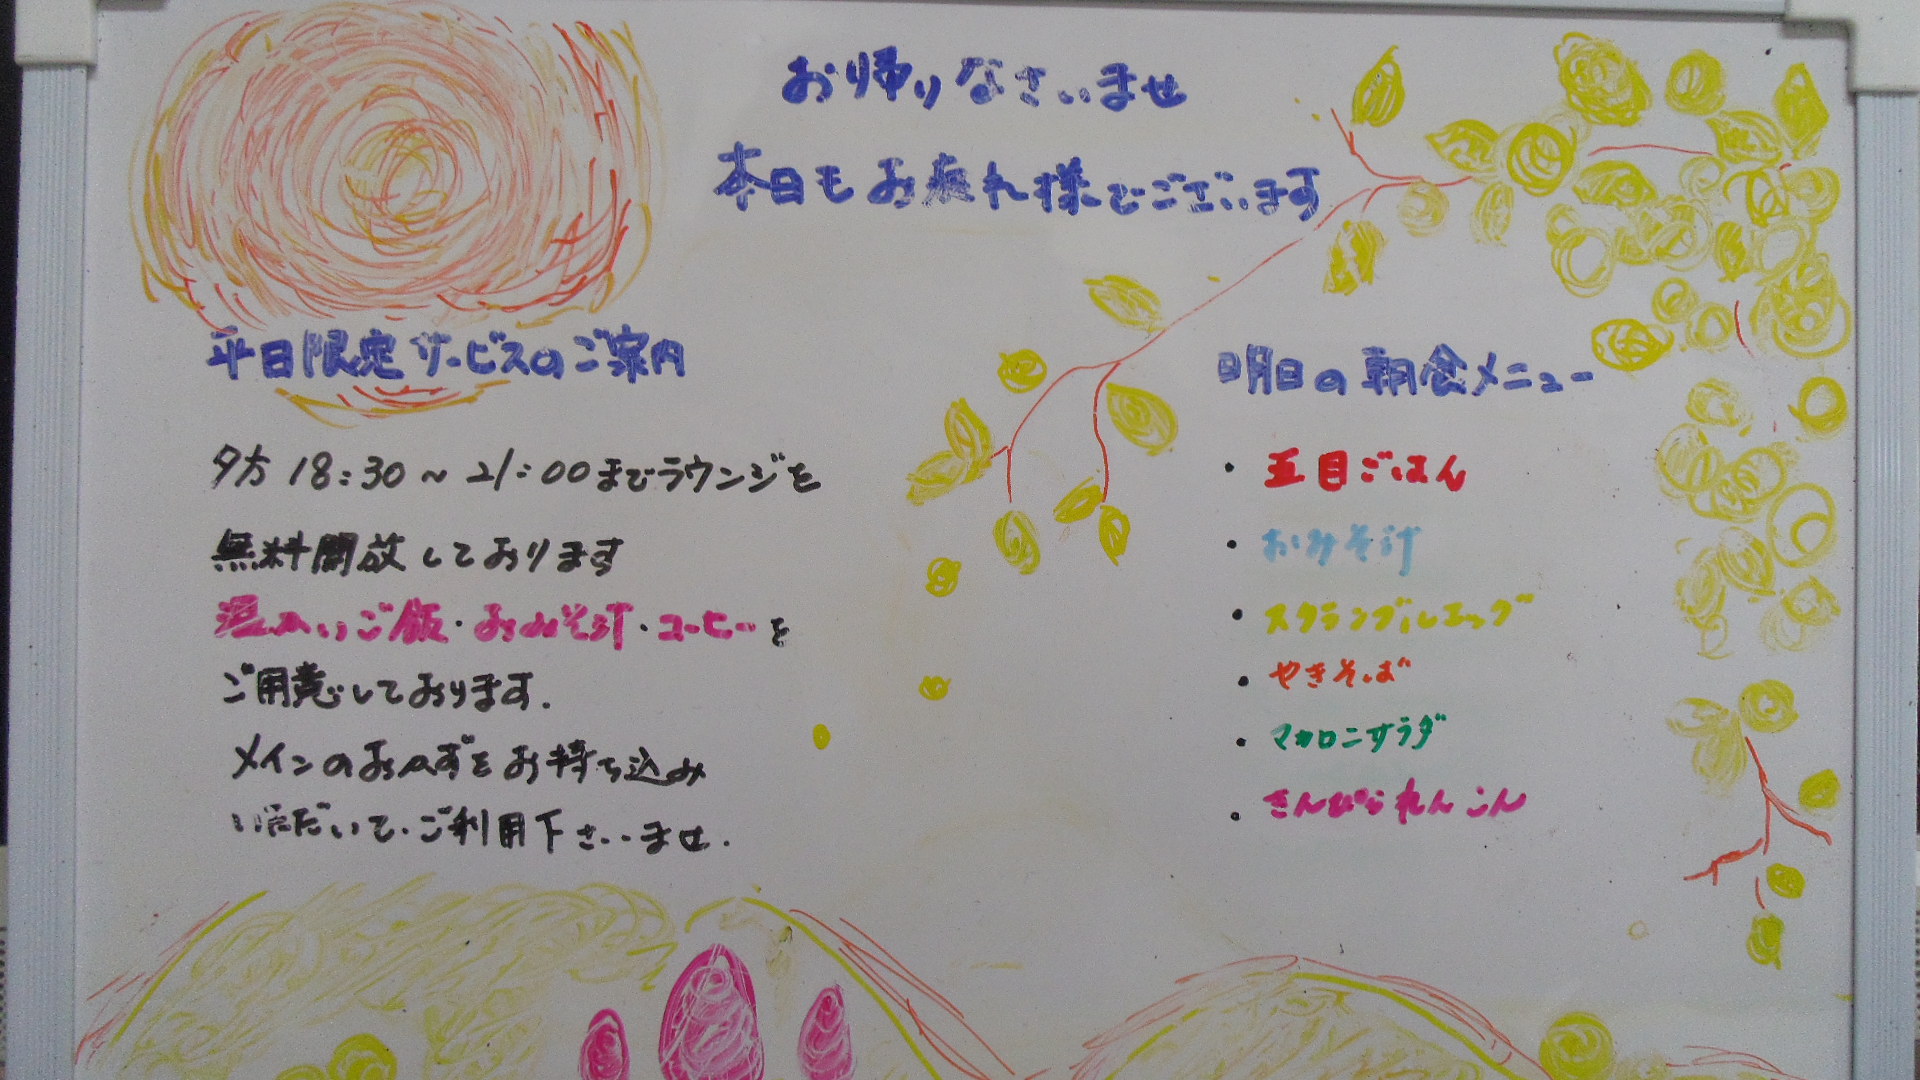 お帰りなさいませ
本日もお疲れ様でございます
平日限定サービスのご案内
夕方 18:30 ~ 21:00までラウンジを
無料開放しております
温かいご飯・おみそ汁・コーヒーを
ご用意しております.
メインのおかずをお持ち込み
いただいて、ご利用下さいませ.
明日の朝食メニュー
・五目ごはん
・おみそ汁
・スクランブルエッグ
・やきそば
・マカロニサラダ
・きんぴられんこん